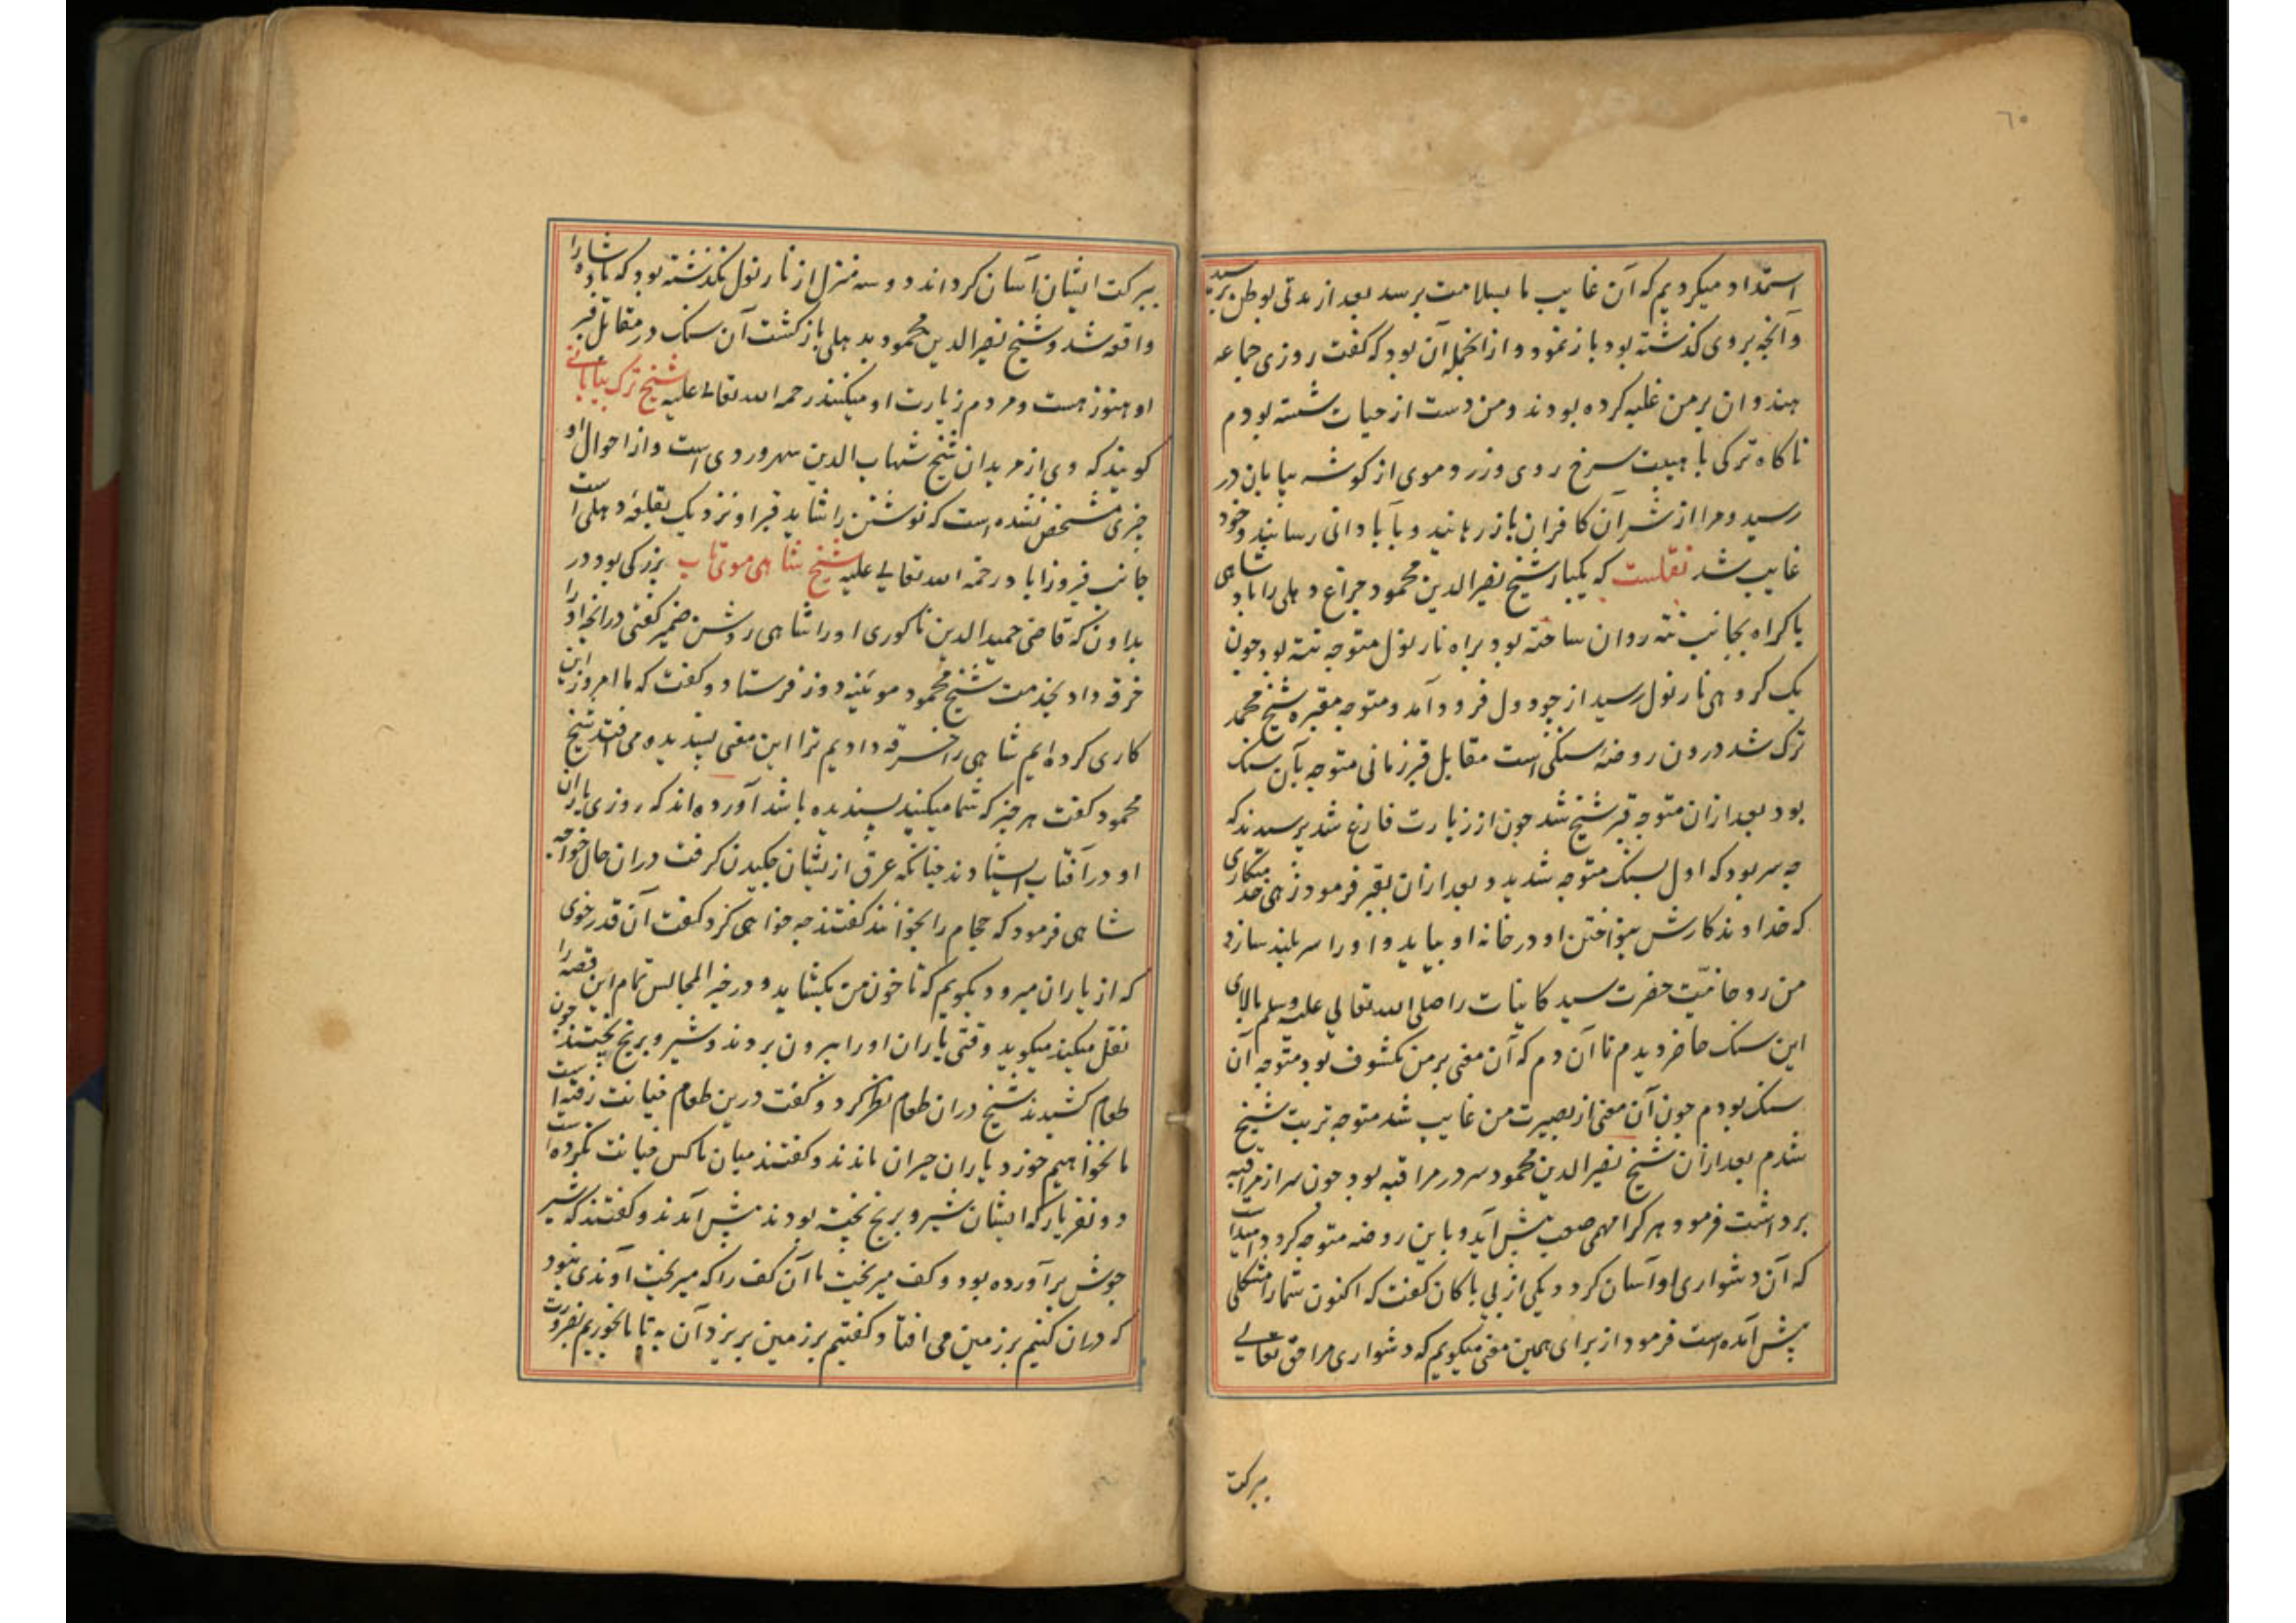 ٦٠
استمداد میکردیم که آن غایب ما بسلامت برسد بعد از مدتی بوطن برسید
و آنچه بروی کذشته بود باز نمود و از انجمله آن بود که کفت روزی جماعه
هندوان بر من غلبه کرده بودند و من دست از حیات شسته بودم
ناکاه ترکی با هیبت سرخ روی وزرد موی از کوشه بیابان در
رسید و مرا از شر آن کافران باز رهانید و بآبادانی رسانید و خود
غایب شد نقلست که یکبار شیخ نصیرالدین محمود چراغ دهلی را بادشاهی
باکراه بجانب تته روان ساخته بود براه نارنول متوجه تته بود چون
یک کروهی نارنول رسید از چودول فرود آمد و متوجه مقبره شیخ محمد
ترک شد درون روضه سنکی است مقابل قبر زمانی متوجه بآن سنک
بود بعد ازان متوجه قبر شیخ شد چون از زیارت فارغ شد پرسیدند که
چه سر بود که اول بسنک متوجه شدید و بعد ازان بقبر فرمود زهی خدمتکاری
که خداوند کارش بنواختن او در خانه او بیاید و او را سربلند سازد
من روحانیت حضرت سید کاینات را صلی الله تعالی علیه وسلم بالای
این سنک حاضر دیدم تا آن دم که آن معنی بر من مکشوف بود متوجه آن
سنک بودم چون آن معنی از بصیرت من غایب شد متوجه تربت شیخ
شدم بعد ازان شیخ نصیرالدین محمود سر در مراقبه بود چون سر از مراقبه
برداشت فرمود هر کرا مهمی صعب پیش آید و باین روضه متوجه کردد امید است
که آن دشواری او آسان کردد یکی از بی باکان کفت که اکنون شما را مشکلی
پیش آمده است فرمود از برای همین معنی میکویم که دشواری مرا حق تعالی
ببرکت
ببرکت ایشان آسان کرداند دو سه منزل از نارنول نکذشته بود که بادشاه را
واقعه شد و شیخ نصیرالدین محمود بدهلی باز کشت آن سنک در مقابل قبر
او هنوز هست و مردم زیارت او میکنند رحمه الله تعالی علیه شیخ ترک بیابانی
کویند که وی از مریدان شیخ شهاب الدین سهروردی است و از احوال او
چیزی مشخص نشده است که نوشتن را شاید قبر او نزدیک بقلعه دهلی است
جانب فیروزاباد رحمة الله تعالی علیه شیخ شاهی موی تاب بزرکی بود در
بداون که قاضی حمیدالدین ناکوری او را شاهی روشن ضمیر کفتی در انجا او را
خرقه داد بخدمت شیخ محمود موئینه دوز فرستاد و کفت که ما امروز این
کاری کرده ایم شاهی را خرقه دادیم ترا این معنی پسندیده می افتد شیخ
محمود کفت هر چیز که شما میکنید پسندیده باشد آورده اند که روزی یاران
او در آفتاب ایستادند چنانکه عرق از ایشان چکیدن کرفت دران حال خواجه
شاهی فرمود که حجام را بخوانند کفتند چه خواهی کرد کفت آن قدر خوی
که از یاران میرود بکویم که تا خون من بکشاید و در خیر المجالس تمام این قصه را
نقل میکند میکوید وقتی یاران او را بیرون بردند و شیر و برنج پختند چون
طعام کشیدند شیخ دران طعام نظر کرد و کفت درین طعام خیانت رفته است
ما نخواهیم خورد یاران حیران ماندند و کفتند میان ما کس خیانت نکرده است
دو نفر یار که ایشان شیر و برنج پخته بودند پیش آمدند و کفتند که شیر
جوش برآورده بود و کف میریخت ما آن کف را که میریخت آوندی نبود
که دران کنیم بر زمین می افتاد کفتیم بر زمین بریزد آن به تا ما بخوریم بضرورت